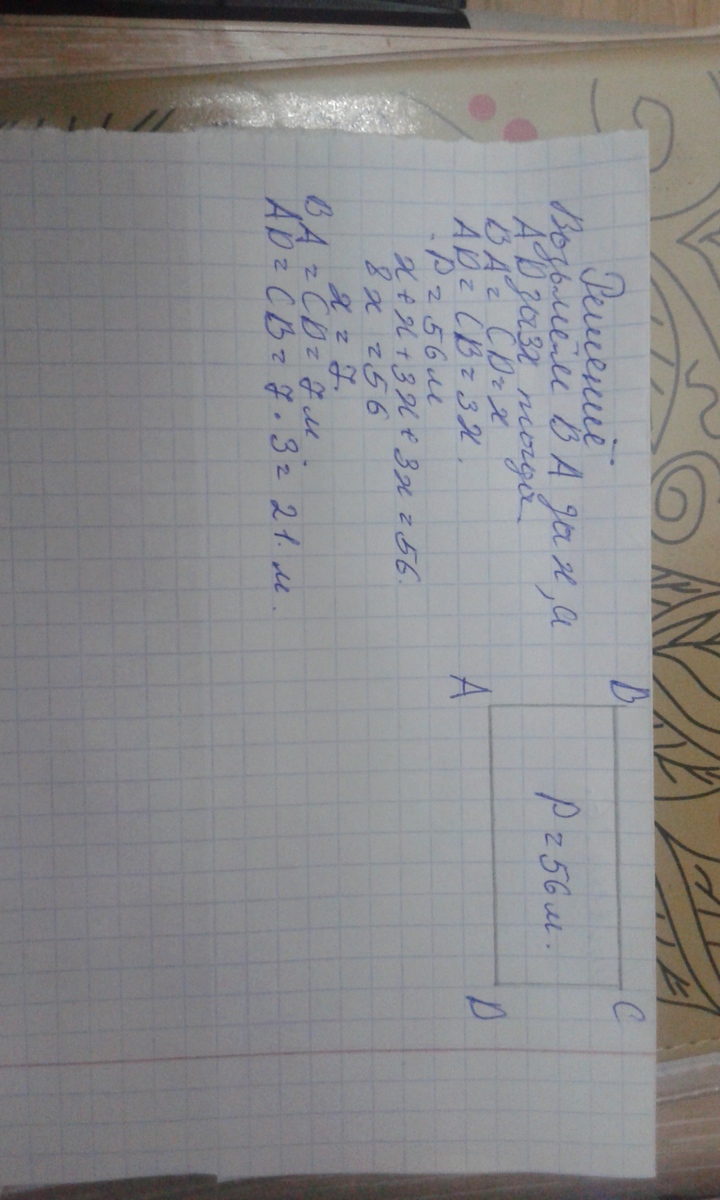 Решение
Возьмём BA за x, а
AD за 3x тогда
BA = CD = x
AD = CB = 3x.
P = 56 м
x + x + 3x + 3x = 56.
8x = 56
x = 7.
BA = CD = 7 м.
AD = CB = 7 · 3 = 21. м.
B
C
P = 56 м.
A
D